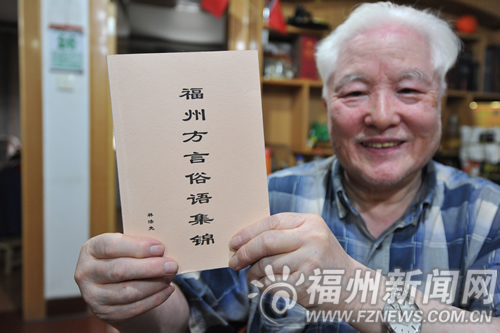 福州方言俗语集锦
福州新闻网
WWW.FZNEWS.COM.CN